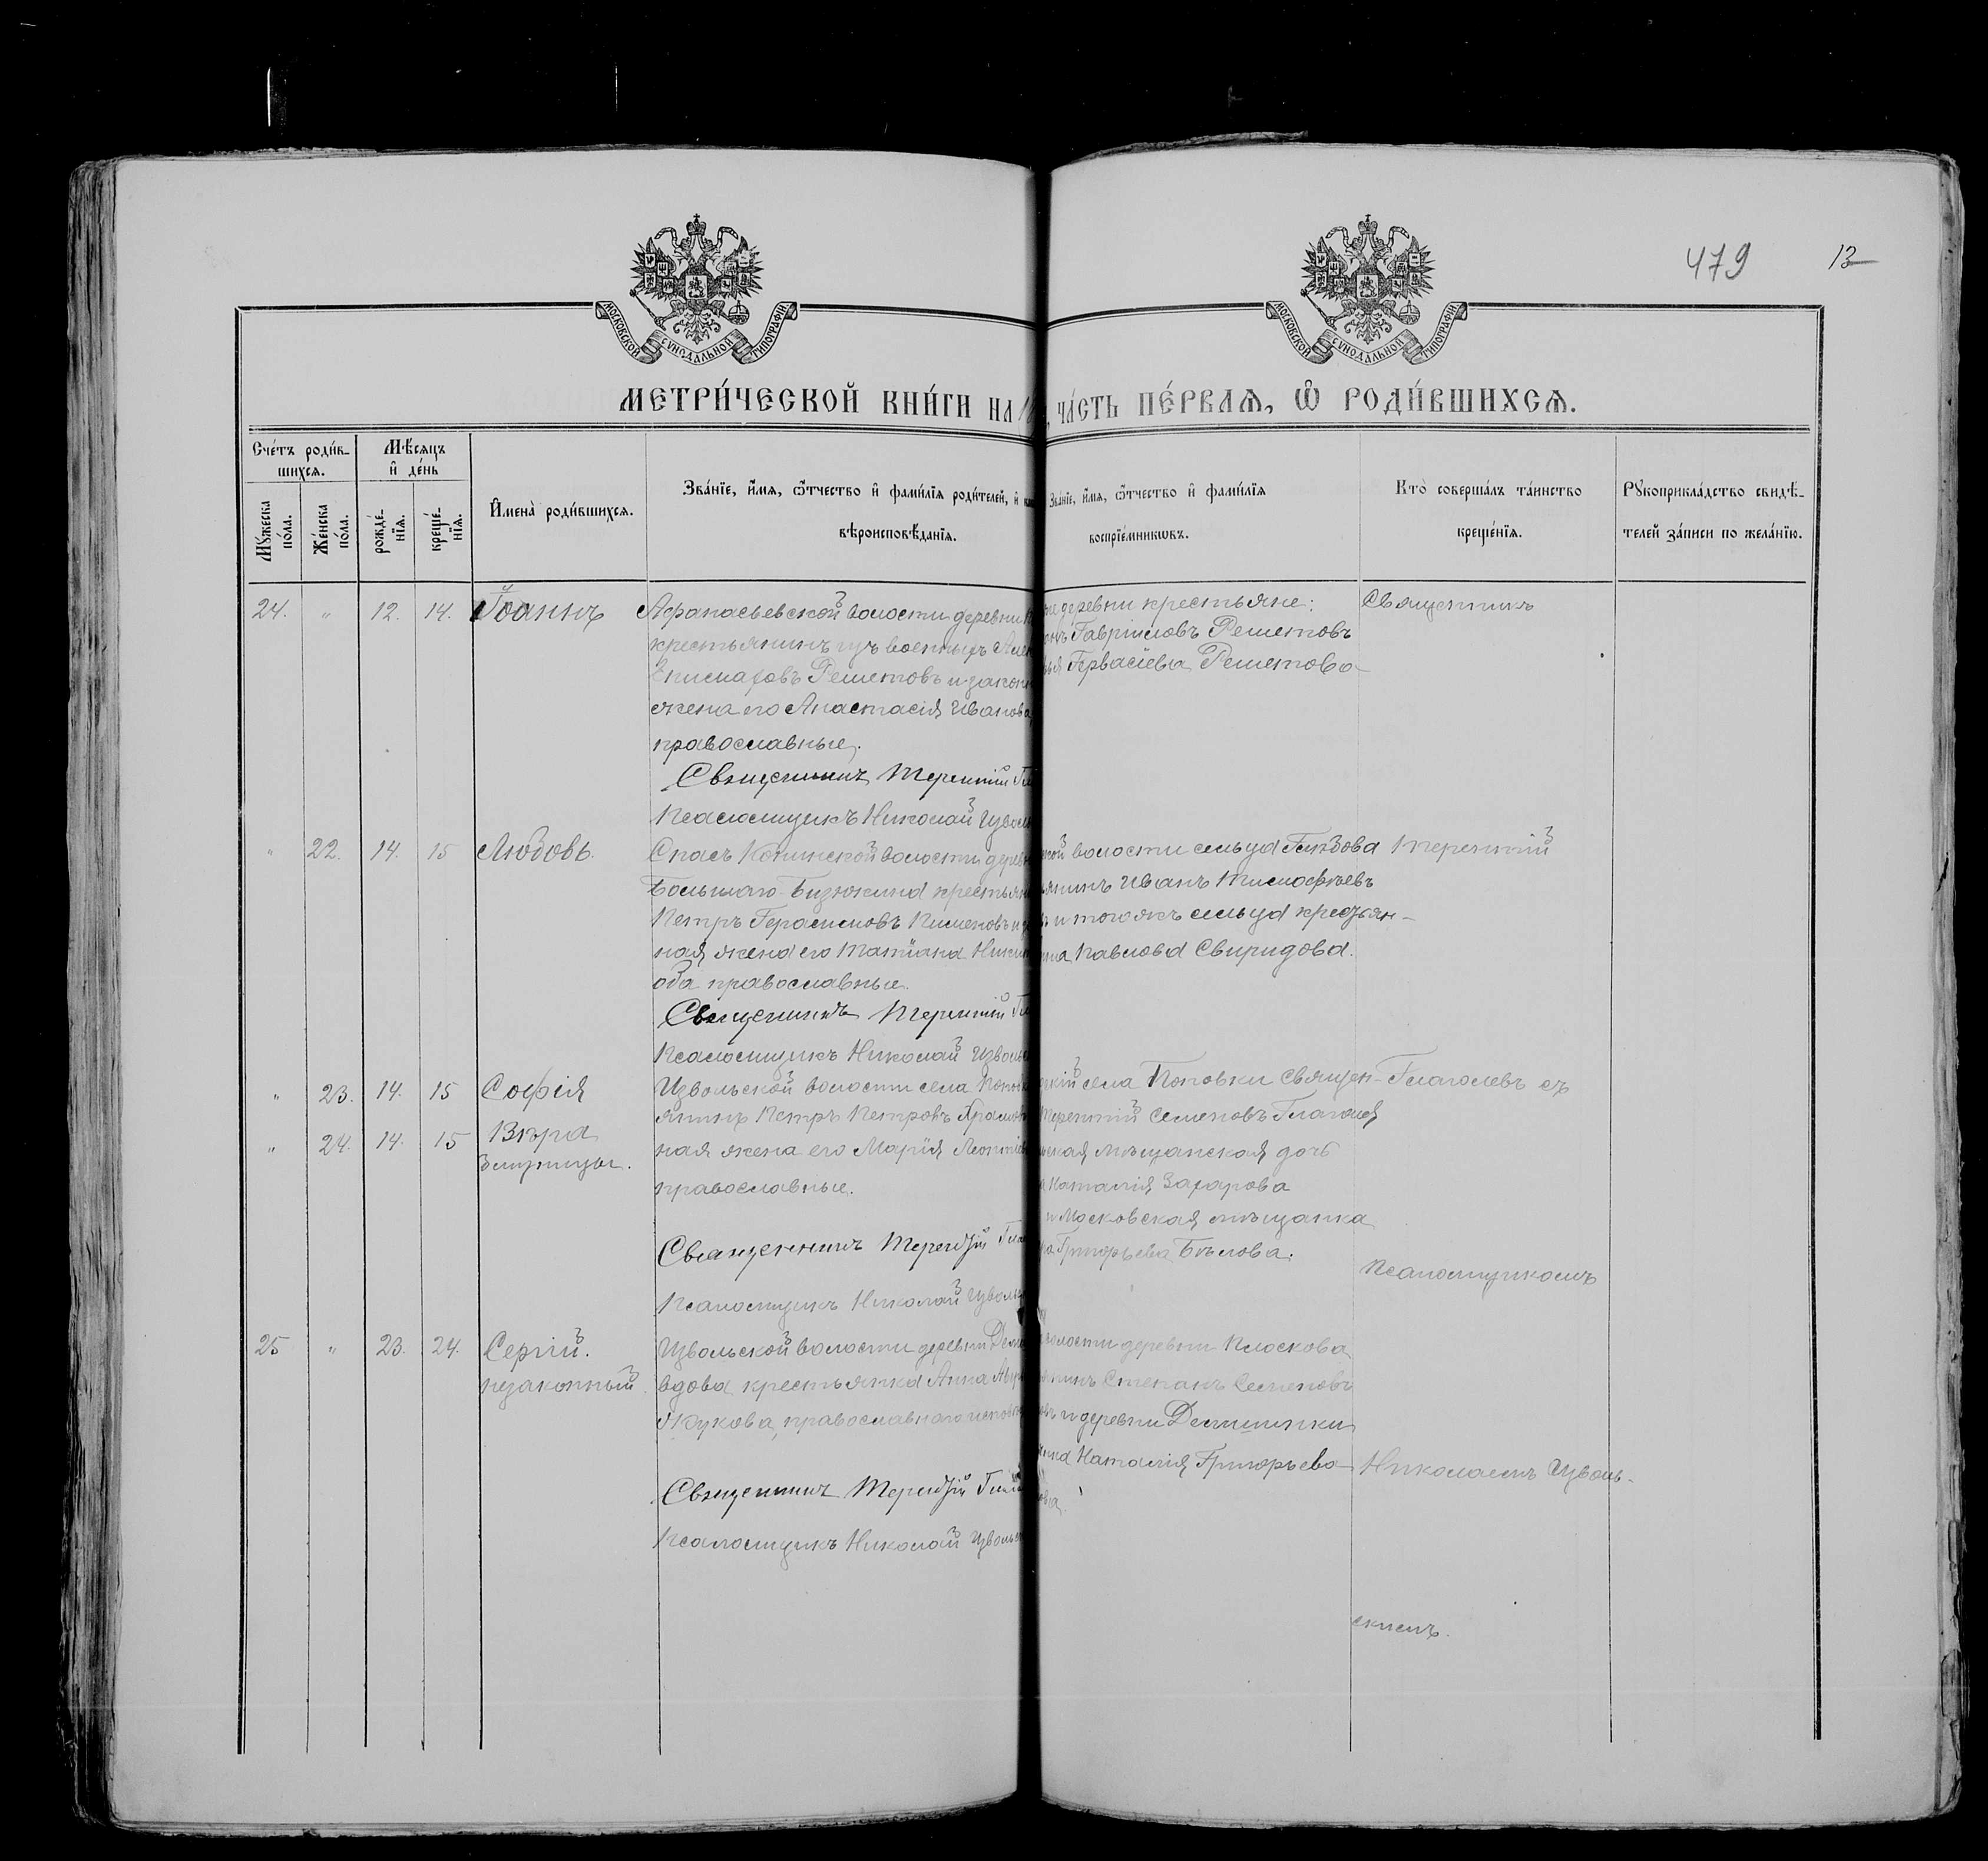 479 13
МОСКОВСКОЙ СѴНОДАЛЬНОЙ ТИПОГРАФІИ.
МОСКОВСКОЙ СѴНОДАЛЬНОЙ ТИПОГРАФІИ.
МЕТРИ́ЧЕСКОЙ КНИ́ГИ НА
ЧА́СТЬ ПЕ́РВАѦ, Ѡ҆ РОДИ́ВШИХСѦ.
Сче́тъ роди́в-
шихсѧ.
Мѣ́сѧцъ
и҆ де́нь
Мꙋ́жеска
по́ла.
Же́нска
по́ла.
рожде́-
нїѧ.
креще́-
нїѧ.
И҆мена̀ роди́вшихсѧ.
Зва́нїе, и҆́мѧ, ѻ҆́тчество и҆ фами́лїѧ роди́телей, и҆
вѣроисповѣ́данїѧ.
Зва́нїе, и҆́мѧ, ѻ҆́тчество и҆ фами́лїѧ
воспрїе́мникѡвъ.
Кто̀ соверша́лъ та́инство
креще́нїѧ.
Рꙋкоприкла́дство свидѣ́-
телей за́писи по жела́нїю.
24. " 12. 14. Іоаннъ
Афанасьевской волости деревни
крестьянинъ изъ военныхъ
Епимаховъ Решетовъ и закон
жена его Анастасія Иванова
православные.
Священникъ Терентій
Псаломщикъ Николай Изволь
деревни крестьяне:
Гавріиловъ Решетовъ
Гервасіева Решетова
Священникъ
" 22. 14. 15 Любовь.
Спасъ Копинской волости дерев
Большаго-Бизюкина крестьян
Петръ Герасимовъ Пименовъ и
ная жена его Татіана
оба православные.
Священникъ Терентій
Псаломщикъ Николай Изволь
волости сельца Глѣбова
Иванъ Тимофѣевъ
и тогожъ сельца крестьян-
Павлова Свиридова.
Терентій
" 23. 14. 15 Софія
" 24. 14. 15 Вѣра
близницы.
Извольской волости села Попов
янинъ Петръ Петровъ
ная жена его Марія Леонтіев
православные.
Священникъ Терентій
Псаломщикъ Николай Изволь
села Поповки Священ-
Терентій Семеновъ Глаголев
мѣщанская дочь
Наталія Захарова
и Московская мѣщанка
Григорьева Бѣлова.
Глаголевъ съ
Псаломщикомъ
25 " 23. 24. Сергій.
незаконный.
Извольской волости деревни
вдова крестьянка Анна
Жукова, православнаго испов
Священникъ Терентій
Псаломщикъ Николай Изволь
волости деревни Плоскова
Степанъ Семеновъ
и деревни Демшинки
Наталія Григорьева
Николаемъ Изволь-
скимъ.